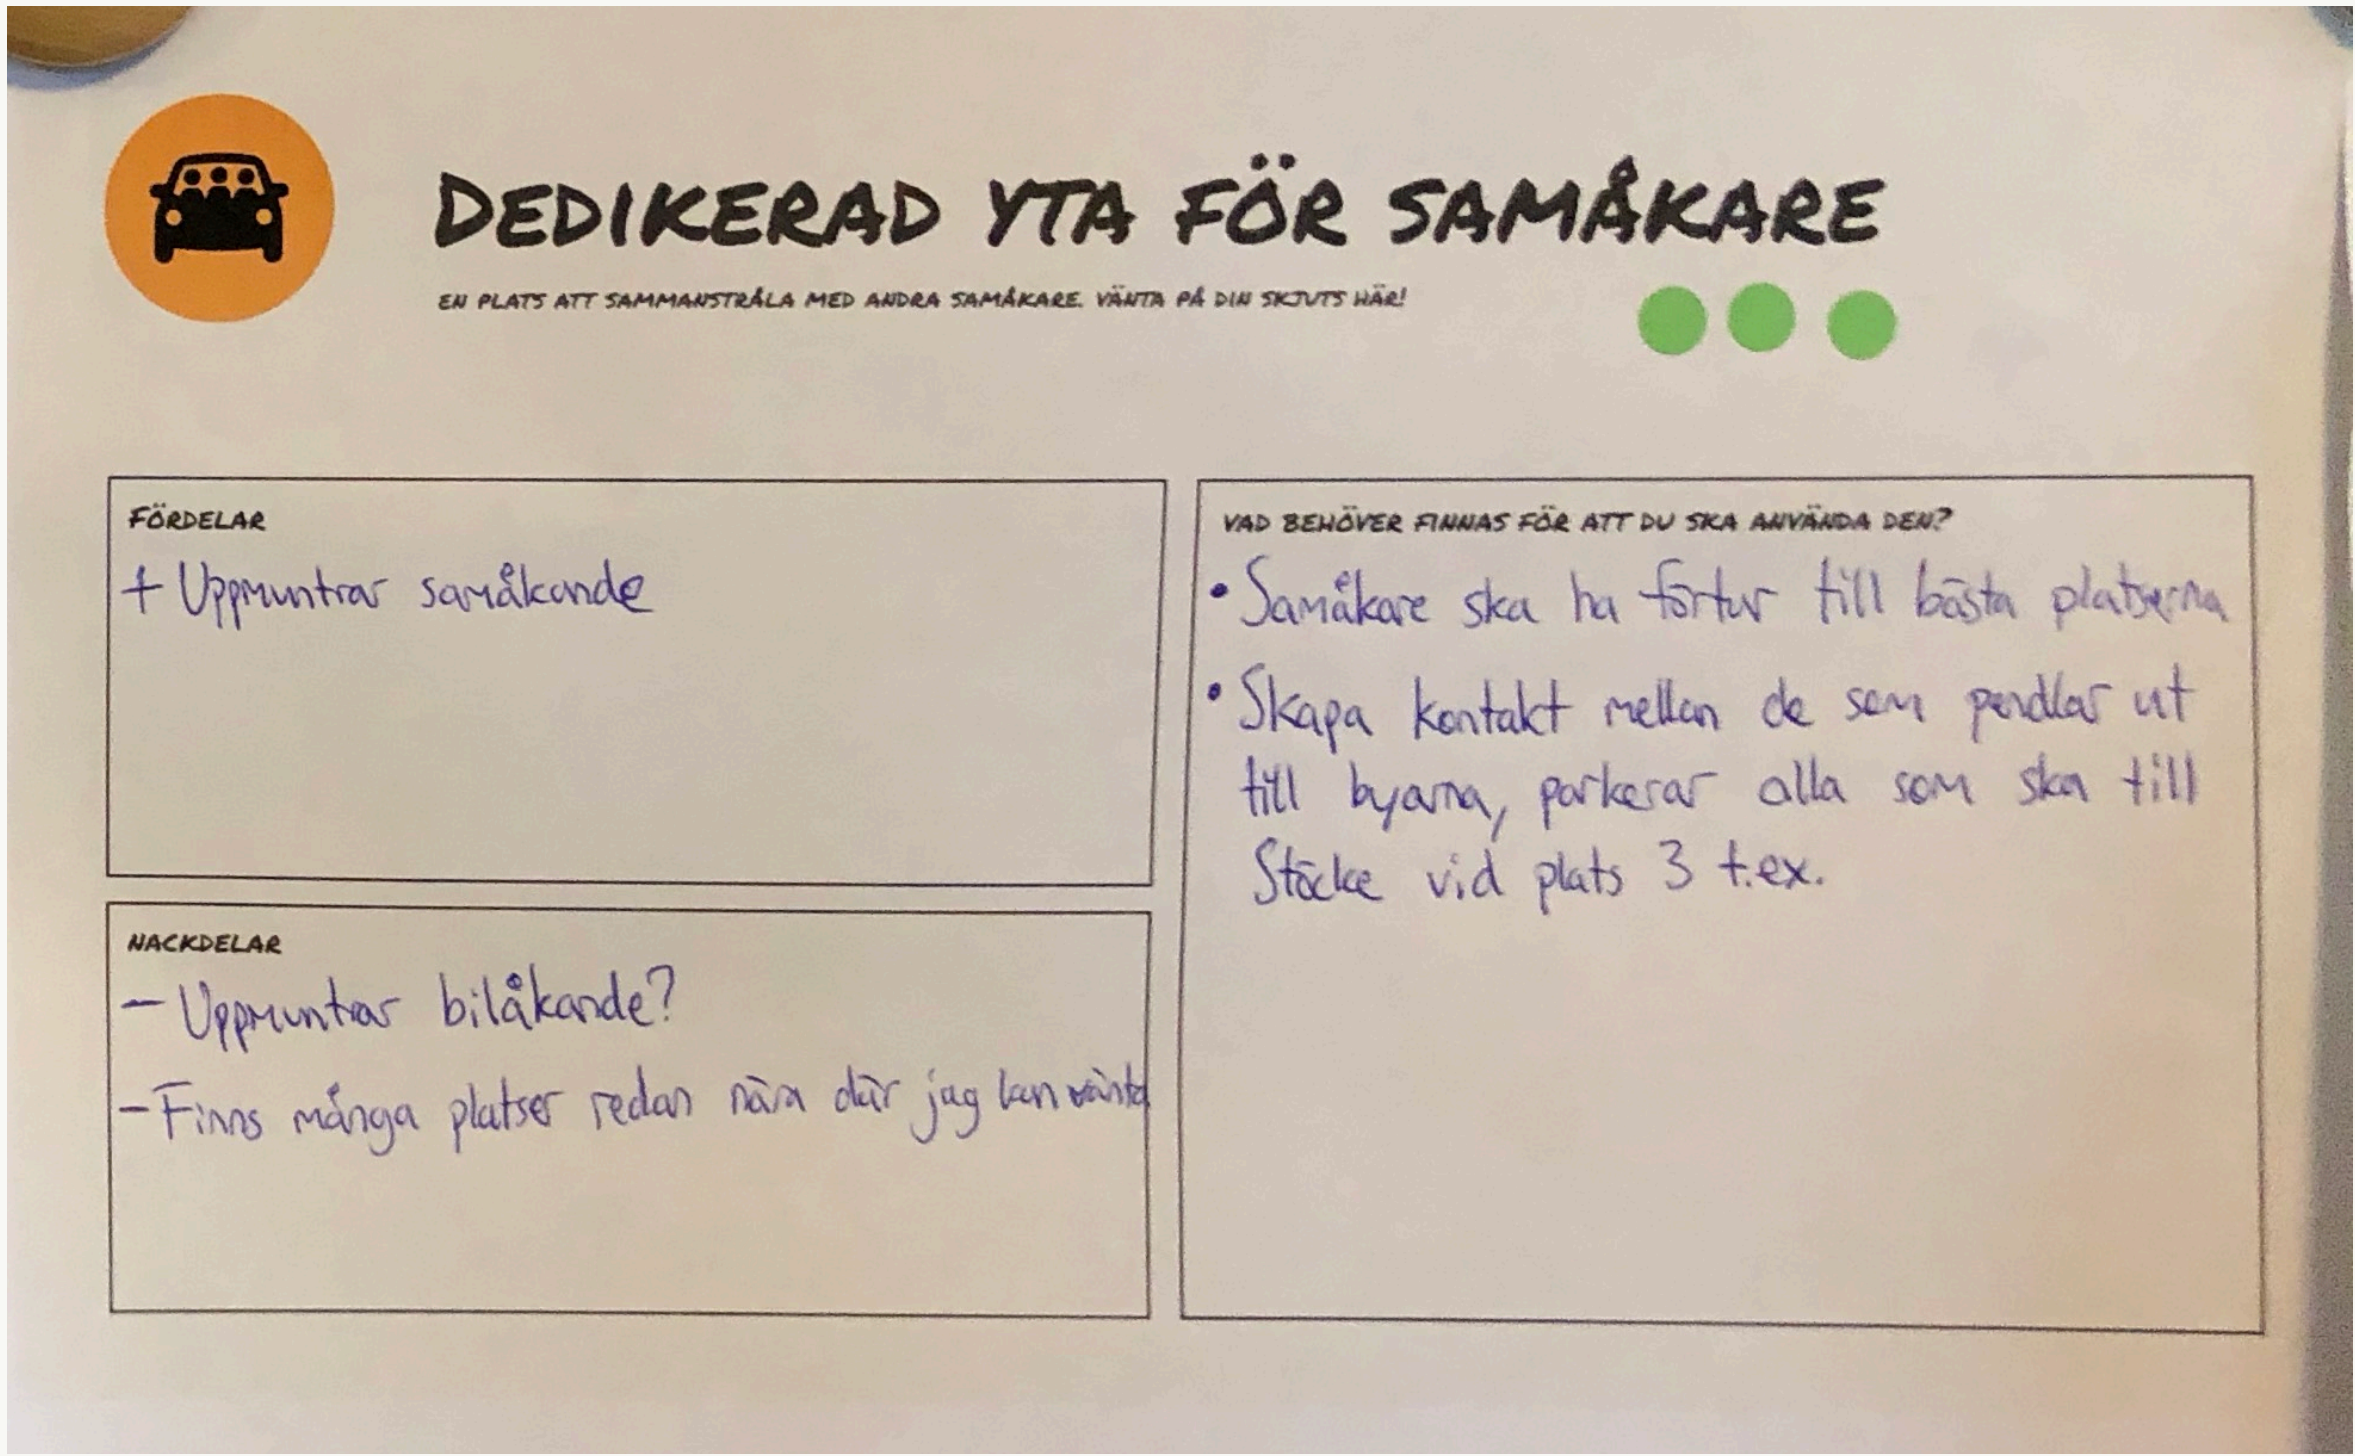 DEDIKERAD YTA FÖR SAMÅKARE
EN PLATS ATT SAMMANSTRÅLA MED ANDRA SAMÅKARE. VÄNTA PÅ DIN SKJUTS HÄR!
FÖRDELAR
+ Uppmuntrar samåkande
NACKDELAR
- Uppmuntrar bilåkande?
- Finns många platser redan nära där jag kan vänta
VAD BEHÖVER FINNAS FÖR ATT DU SKA ANVÄNDA DEN?
• Samåkare ska ha förtur till bästa platserna
• Skapa kontakt mellan de som pendlar ut
till byarna, parkerar alla som ska till
Stöcke vid plats 3 t.ex.